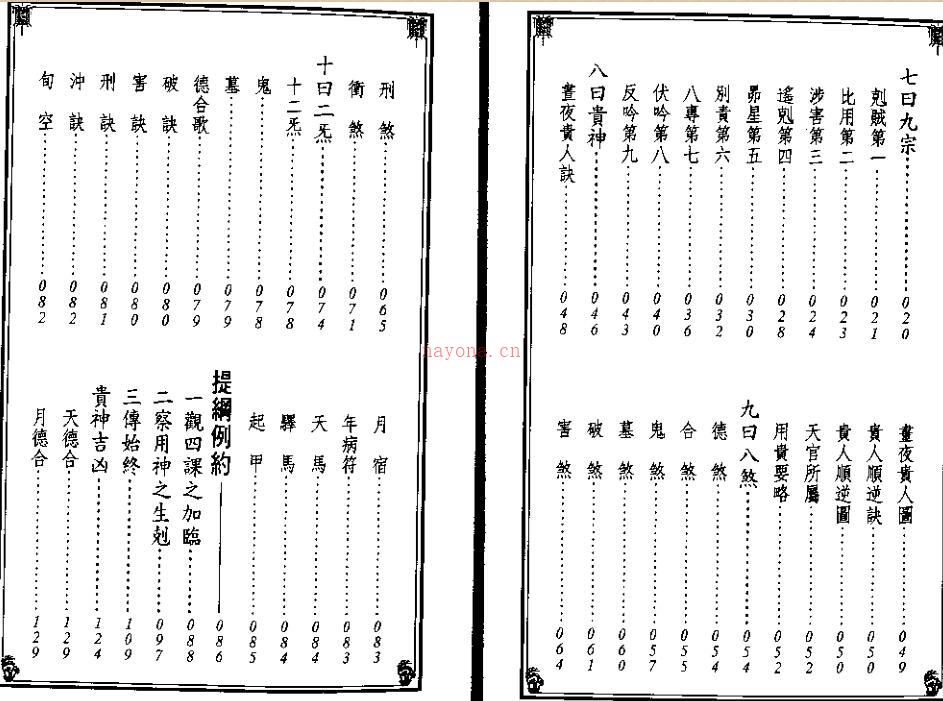 七曰九宗……020
剋賊第一……021
比用第二……023
涉害第三……024
遙剋第四……028
昴星第五……030
別責第六……032
八專第七……036
伏吟第八……040
反吟第九……043
八曰貴神……046
晝夜貴人訣……048
晝夜貴人圖……049
貴人順逆訣……050
貴人順逆圖……050
天官所屬……052
用貴要略……052
九曰八煞……054
德煞……054
合煞……055
鬼煞……057
墓煞……060
破煞……061
害煞……064
刑煞……065
衝煞……071
十曰二炁……074
十二炁……078
鬼……078
墓……079
德合歌……079
破訣……080
害訣……080
刑訣……081
沖訣……082
旬空……082
月宿……083
年病符……083
天馬……084
驛馬……084
起甲……085
提綱例約——086
一觀四課之加臨……088
二察用神之生剋……097
三傳始終……109
貴神吉凶……124
天德合……129
月德合……129
nayona.cn